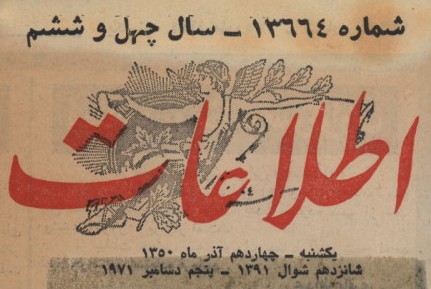 شماره ۱۳۶۶٤ ــ سال چهل و ششم
اطلاعات
یکشنبه ــ چهاردهم آذر ماه ۱۳۵۰
شانزدهم شوال ۱۳۹۱ ــ پنجم دسامبر ۱۹۷۱